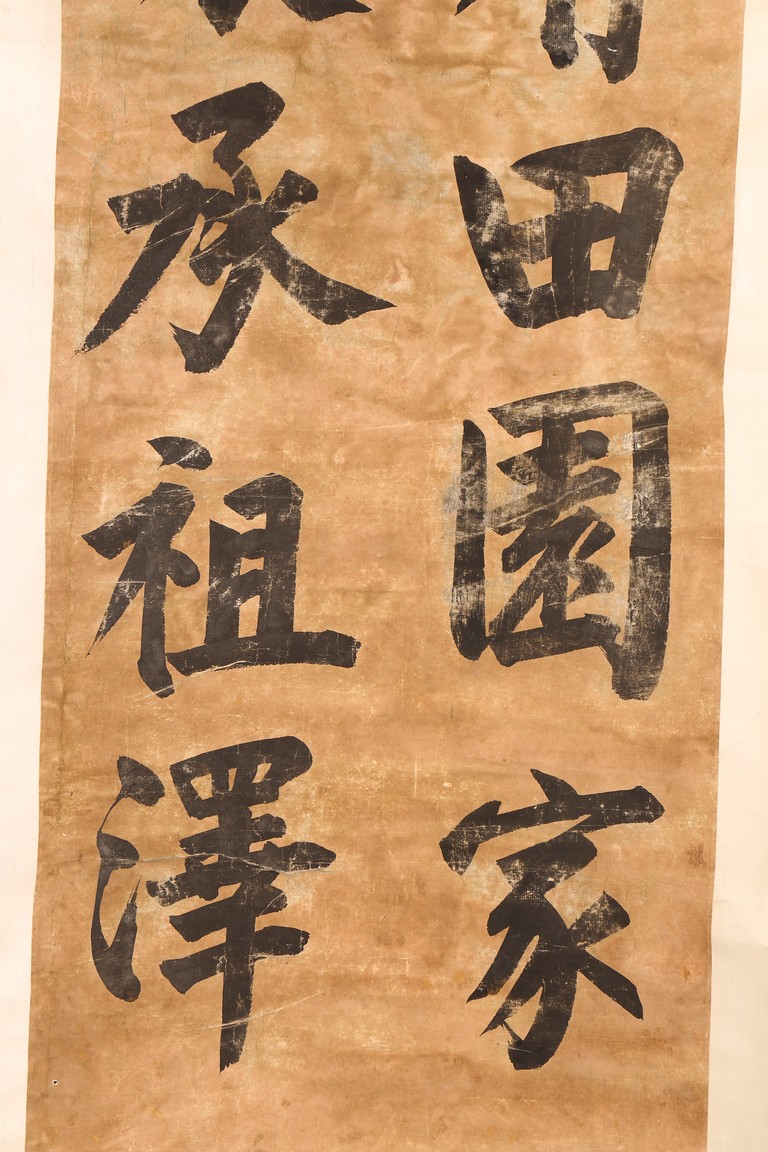 田園家
承祖澤